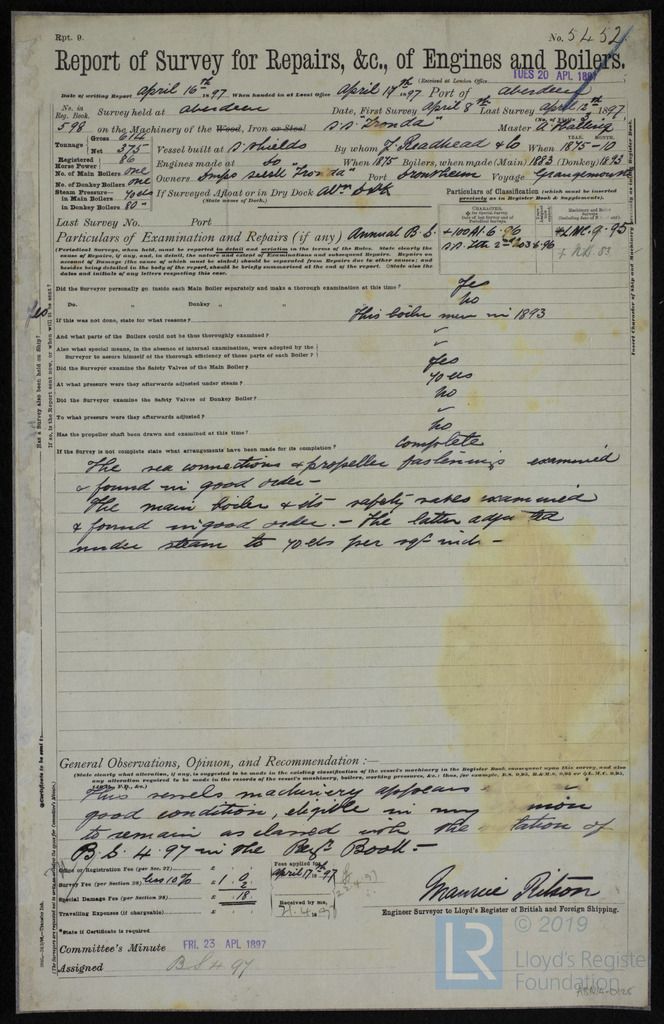 Rpt. 9.
No. 5452
Report of Survey for Repairs, &c., of Engines and Boilers.
(Received at London Office TUES 20 APL 1897
Date of writing Report April 16th 1897 When handed in at Local Office April 17th 1897 Port of Aberdeen
No. in Reg. Book. Survey held at Aberdeen Date, First Survey April 8th Last Survey April 12th 1897
598 on the Machinery of the Wood, Iron or Steel S.S. "Tronda" Master A. Halling
Tonnage Gross 614 Net 375 Vessel built at S. Shields By whom J. Readhead & Co When 1875-10
YEAR. MONTH.
Registered Horse Power 86 Engines made at Do When 1875 Boilers, when made (Main) 1883 (Donkey) 1893
No. of Main Boilers one
No. of Donkey Boilers one
Owners Port Drontheim Voyage Grangemouth
Steam Pressure—
in Main Boilers 70 lbs
in Donkey Boilers 80
If Surveyed Afloat or in Dry Dock
(State name of Dock.)
Particulars of Classification (which must be inserted precisely as in Register Book & Supplements).
Last Survey No. Port
Particulars of Examination and Repairs (if any) Annual B.S.
CHARACTER.
+100A1. 6-96
+LMC. 9-95
+ N.B. 83
Did the Surveyor personally go inside each Main Boiler separately and make a thorough examination at this time? Yes
Do. Donkey " " no
If this was not done, state for what reasons? This boiler new in 1893
And what parts of the Boilers could not be thoroughly examined?
Also what special means, in the absence of internal examination, were adopted by the
Surveyor to assure himself of the thorough efficiency of those parts of each Boiler?
Did the Surveyor examine the Safety Valves of the Main Boiler? Yes
At what pressure were they afterwards adjusted under steam? 70 lbs
Did the Surveyor examine the Safety Valves of Donkey Boiler? no
To what pressure were they afterwards adjusted?
Has the propeller shaft been drawn and examined at this time? no
If the Survey is not complete state what arrangements have been made for its completion? Complete
The sea connections & propeller fastenings examined
& found in good order -
The main boiler & its safety valves examined
& found in good order. - The latter adjusted
under steam to 70 lbs per sqr inch -
General Observations, Opinion, and Recommendation :—
(State clearly what alteration, if any, is suggested to be made in the existing classification of the vessel's machinery in the Register Book consequent upon this survey, and also
This vessels machinery appears
good condition, eligible in my
to remain as classed with the
B.S. 4.97 in the Regr Book -
Office or Registration Fee (per Sec. 27) £
Survey Fee (per Section 28) less 10% £ 1. 0
2
Special Damage Fee (per Section 28) £ .18
Travelling Expenses (if chargeable) £
Fees applied for April 17th 97
Received by me,
21.4.97
Maurice Ritson
Engineer Surveyor to Lloyd's Register of British and Foreign Shipping.
*State if Certificate is required
Committee's Minute FRI. 23 APL 1897
Assigned BS 4 97
LR
© 2019
Lloyd's Register
Foundation